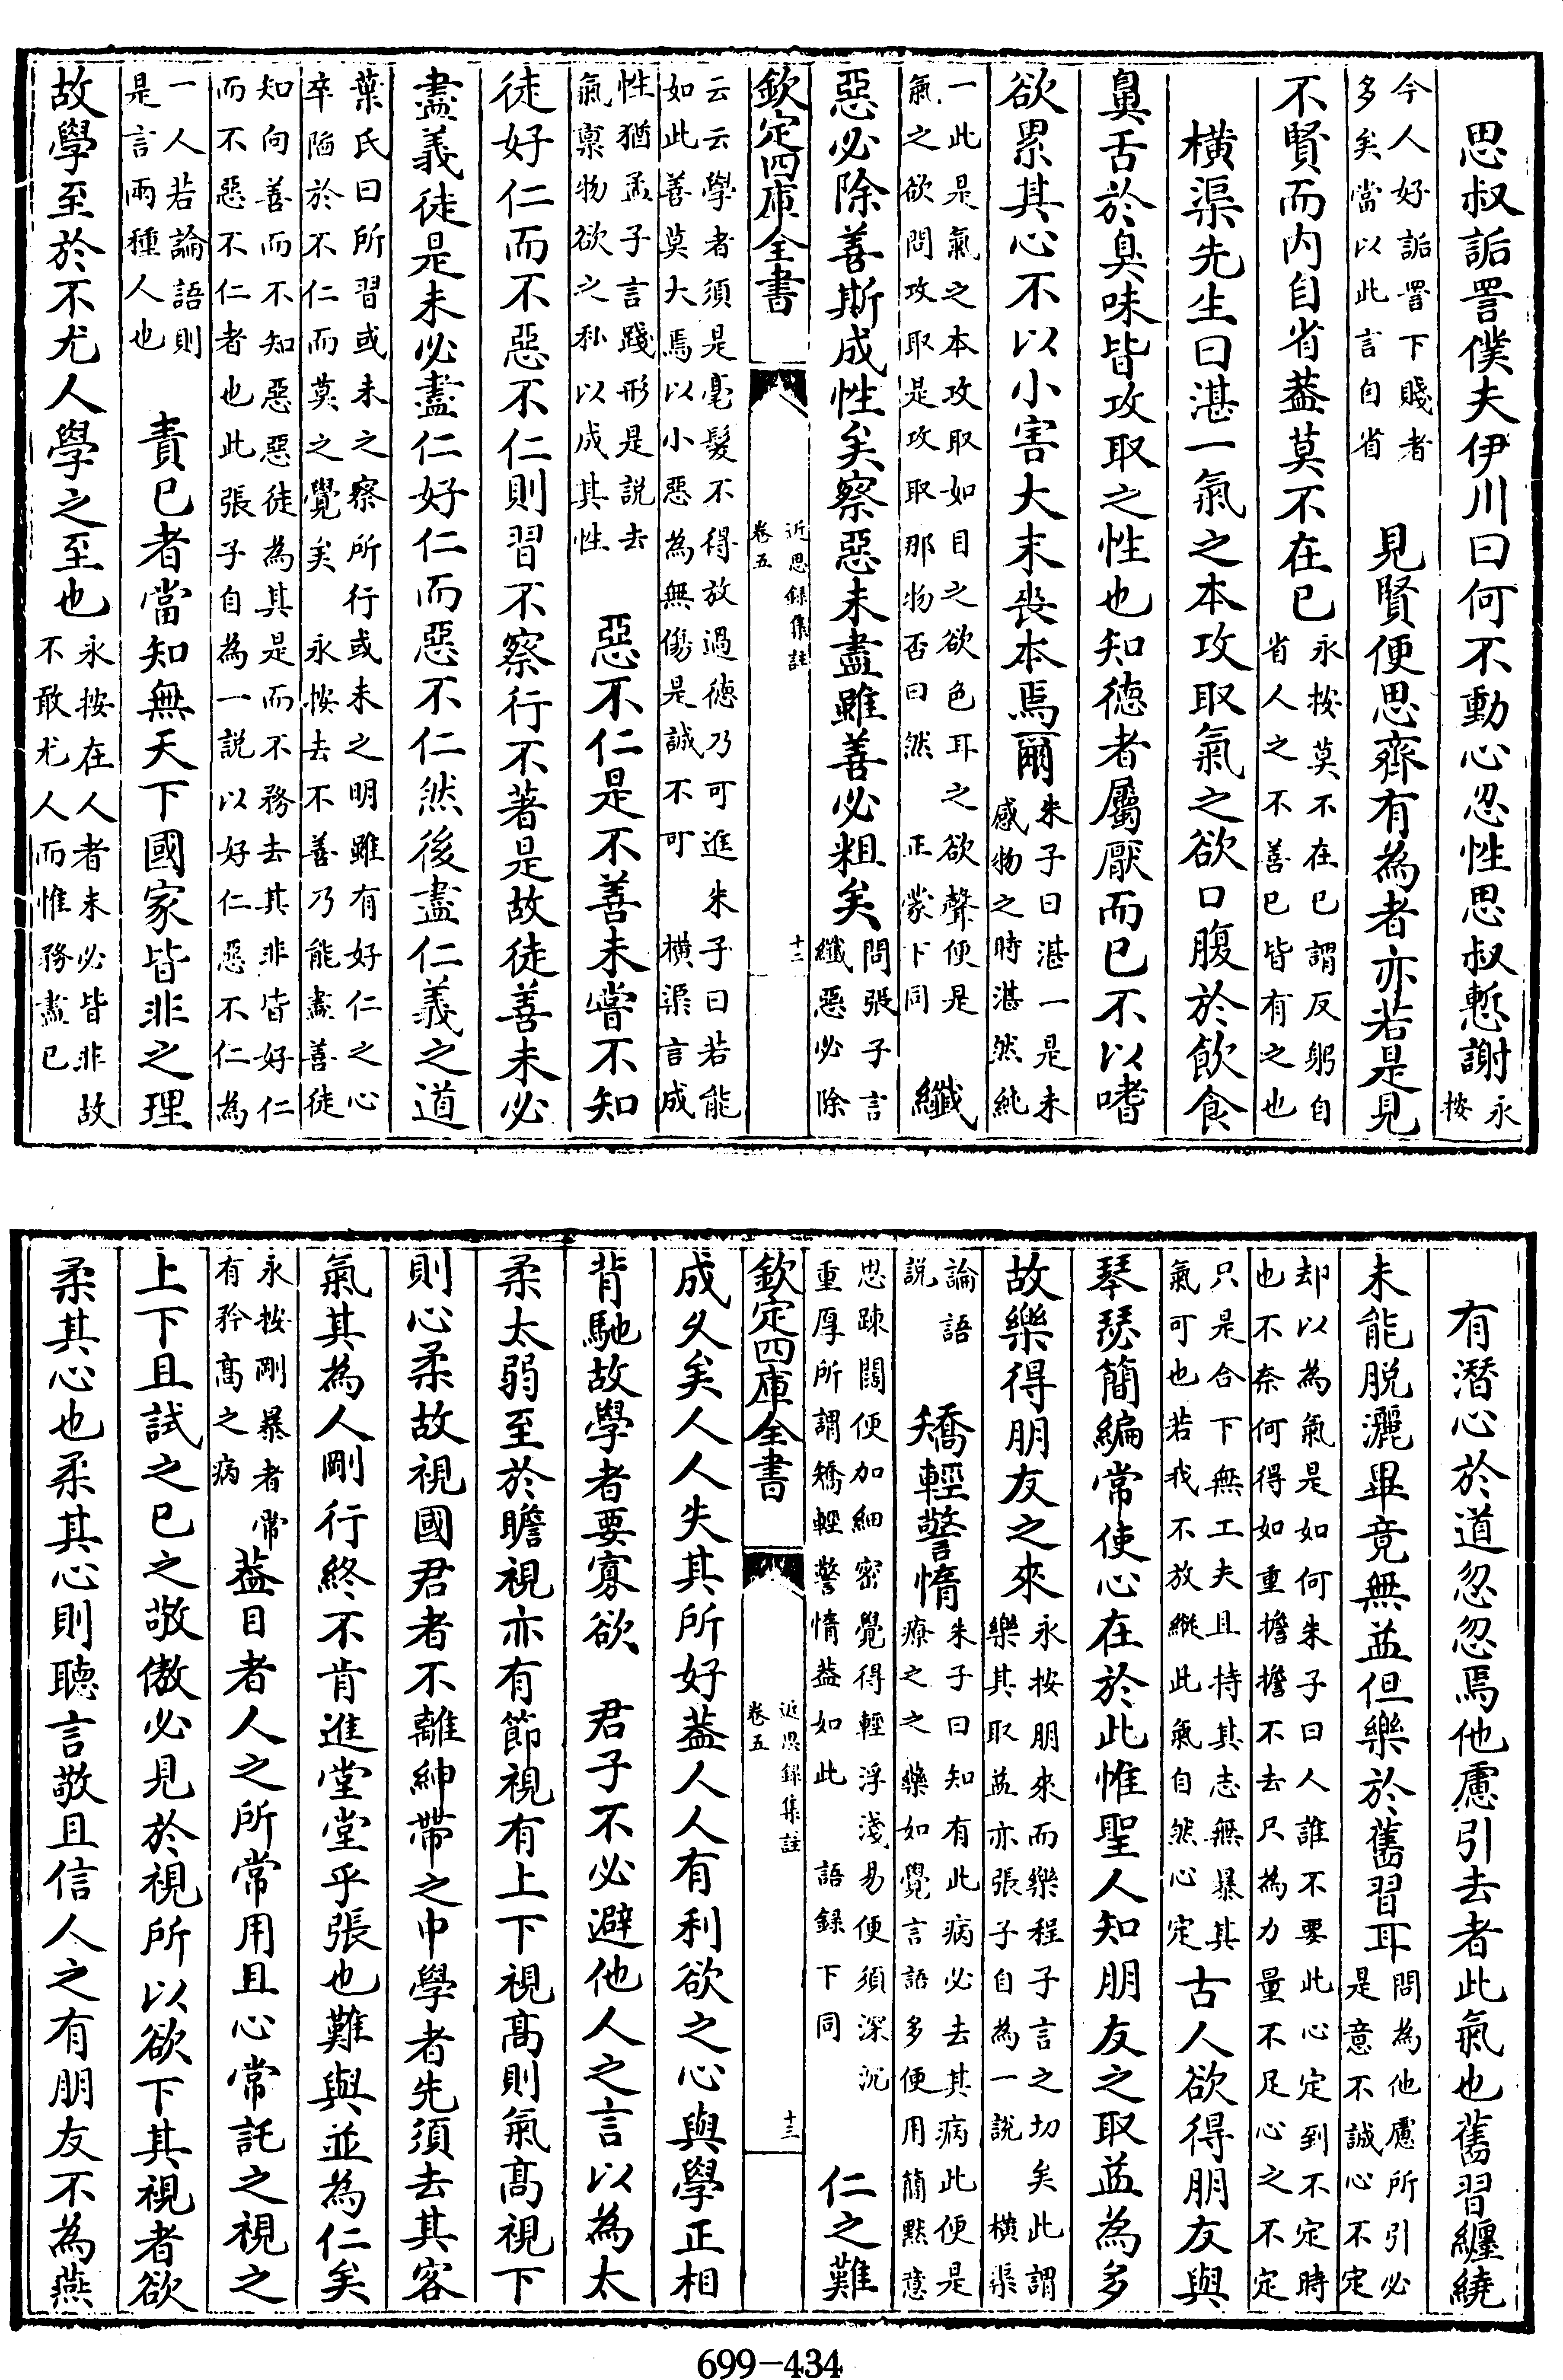 思叔詬詈僕夫伊川曰何不動心忍性思叔慙謝永按
今人好詬詈下賤者多矣當以此言自省　見賢便思齊有為者亦若是見
不賢而内自省葢莫不在已永按莫不在已謂反躬自省人之不善已皆有之也
橫渠先生曰湛一氣之本攻取氣之欲口腹於飲食
鼻舌於臭味皆攻取之性也知德者屬厭而已不以嗜
欲累其心不以小害大末喪本焉爾朱子曰湛一是未感物之時湛然純
一此是氣之本攻取如目之欲色耳之欲聲便是氣之欲問攻取是攻取那物否曰然　正蒙下同　纖
惡必除善斯成性矣察惡未盡雖善必粗矣問張子言纖惡必除
欽定四庫全書　近思録集註卷五　十二
云云學者須是毫髮不得放過德乃可進朱子曰若能如此善莫大焉以小惡為無傷是誠不可　橫渠言成
性猶孟子言踐形是説去氣稟物欲之私以成其性　惡不仁是不善未嘗不知
徒好仁而不惡不仁則習不察行不著是故徒善未必
盡義徒是未必盡仁好仁而惡不仁然後盡仁義之道
葉氏曰所習或未之察所行或未之明雖有好仁之心卒陷於不仁而莫之覺矣　永按去不善乃能盡善徒
知向善而不知惡惡徒為其是而不務去其非皆好仁而不惡不仁者也此張子自為一説以好仁惡不仁為
一人若論語則是言兩種人也　責已者當知無天下國家皆非之理
故學至於不尤人學之至也永按在人者未必皆非故不敢尤人而惟務盡已
有潛心於道忽忽焉他慮引去者此氣也舊習纏繞
未能脱灑畢竟無益但樂於舊習耳問為他慮所引必是意不誠心不定
却以為氣是如何朱子曰人誰不要此心定到不定時也不奈何得如重擔擔不去只為力量不足心之不定
只是合下無工夫且持其志無暴其氣可也若我不放縱此氣自然心定　古人欲得朋友與
琴瑟簡編常使心在於此惟聖人知朋友之取益為多
故樂得朋友之來永按朋來而樂程子言之切矣此謂樂其取益亦張子自為一説　橫渠
論語説　矯輕警惰朱子曰知有此病必去其病此便是療之之藥如覺言語多便用簡默意
思疎闊便加細密覺得輕浮淺易便須深沉重厚所謂矯輕警惰葢如此　語録下同　仁之難
欽定四庫全書　近思録集註卷五　十三
成乆矣人人失其所好葢人人有利欲之心與學正相
背馳故學者要寡欲　君子不必避他人之言以為太
柔太弱至於瞻視亦有節視有上下視髙則氣髙視下
則心柔故視國君者不離紳帶之中學者先須去其客
氣其為人剛行終不肯進堂堂乎張也難與並為仁矣
永按剛暴者常有矜髙之病　葢目者人之所常用且心常託之視之
上下且試之已之敬傲必見於視所以欲下其視者欲
柔其心也柔其心則聽言敬且信人之有朋友不為燕
699-434